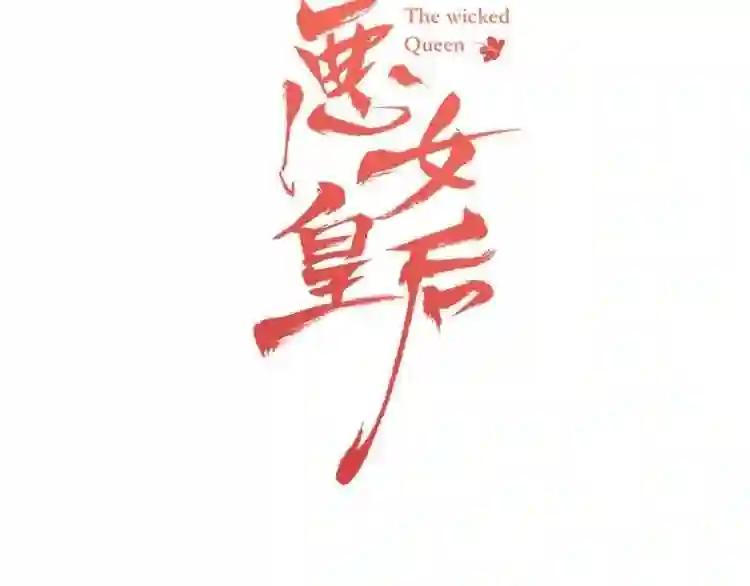 The wicked
Queen
悪女
皇后